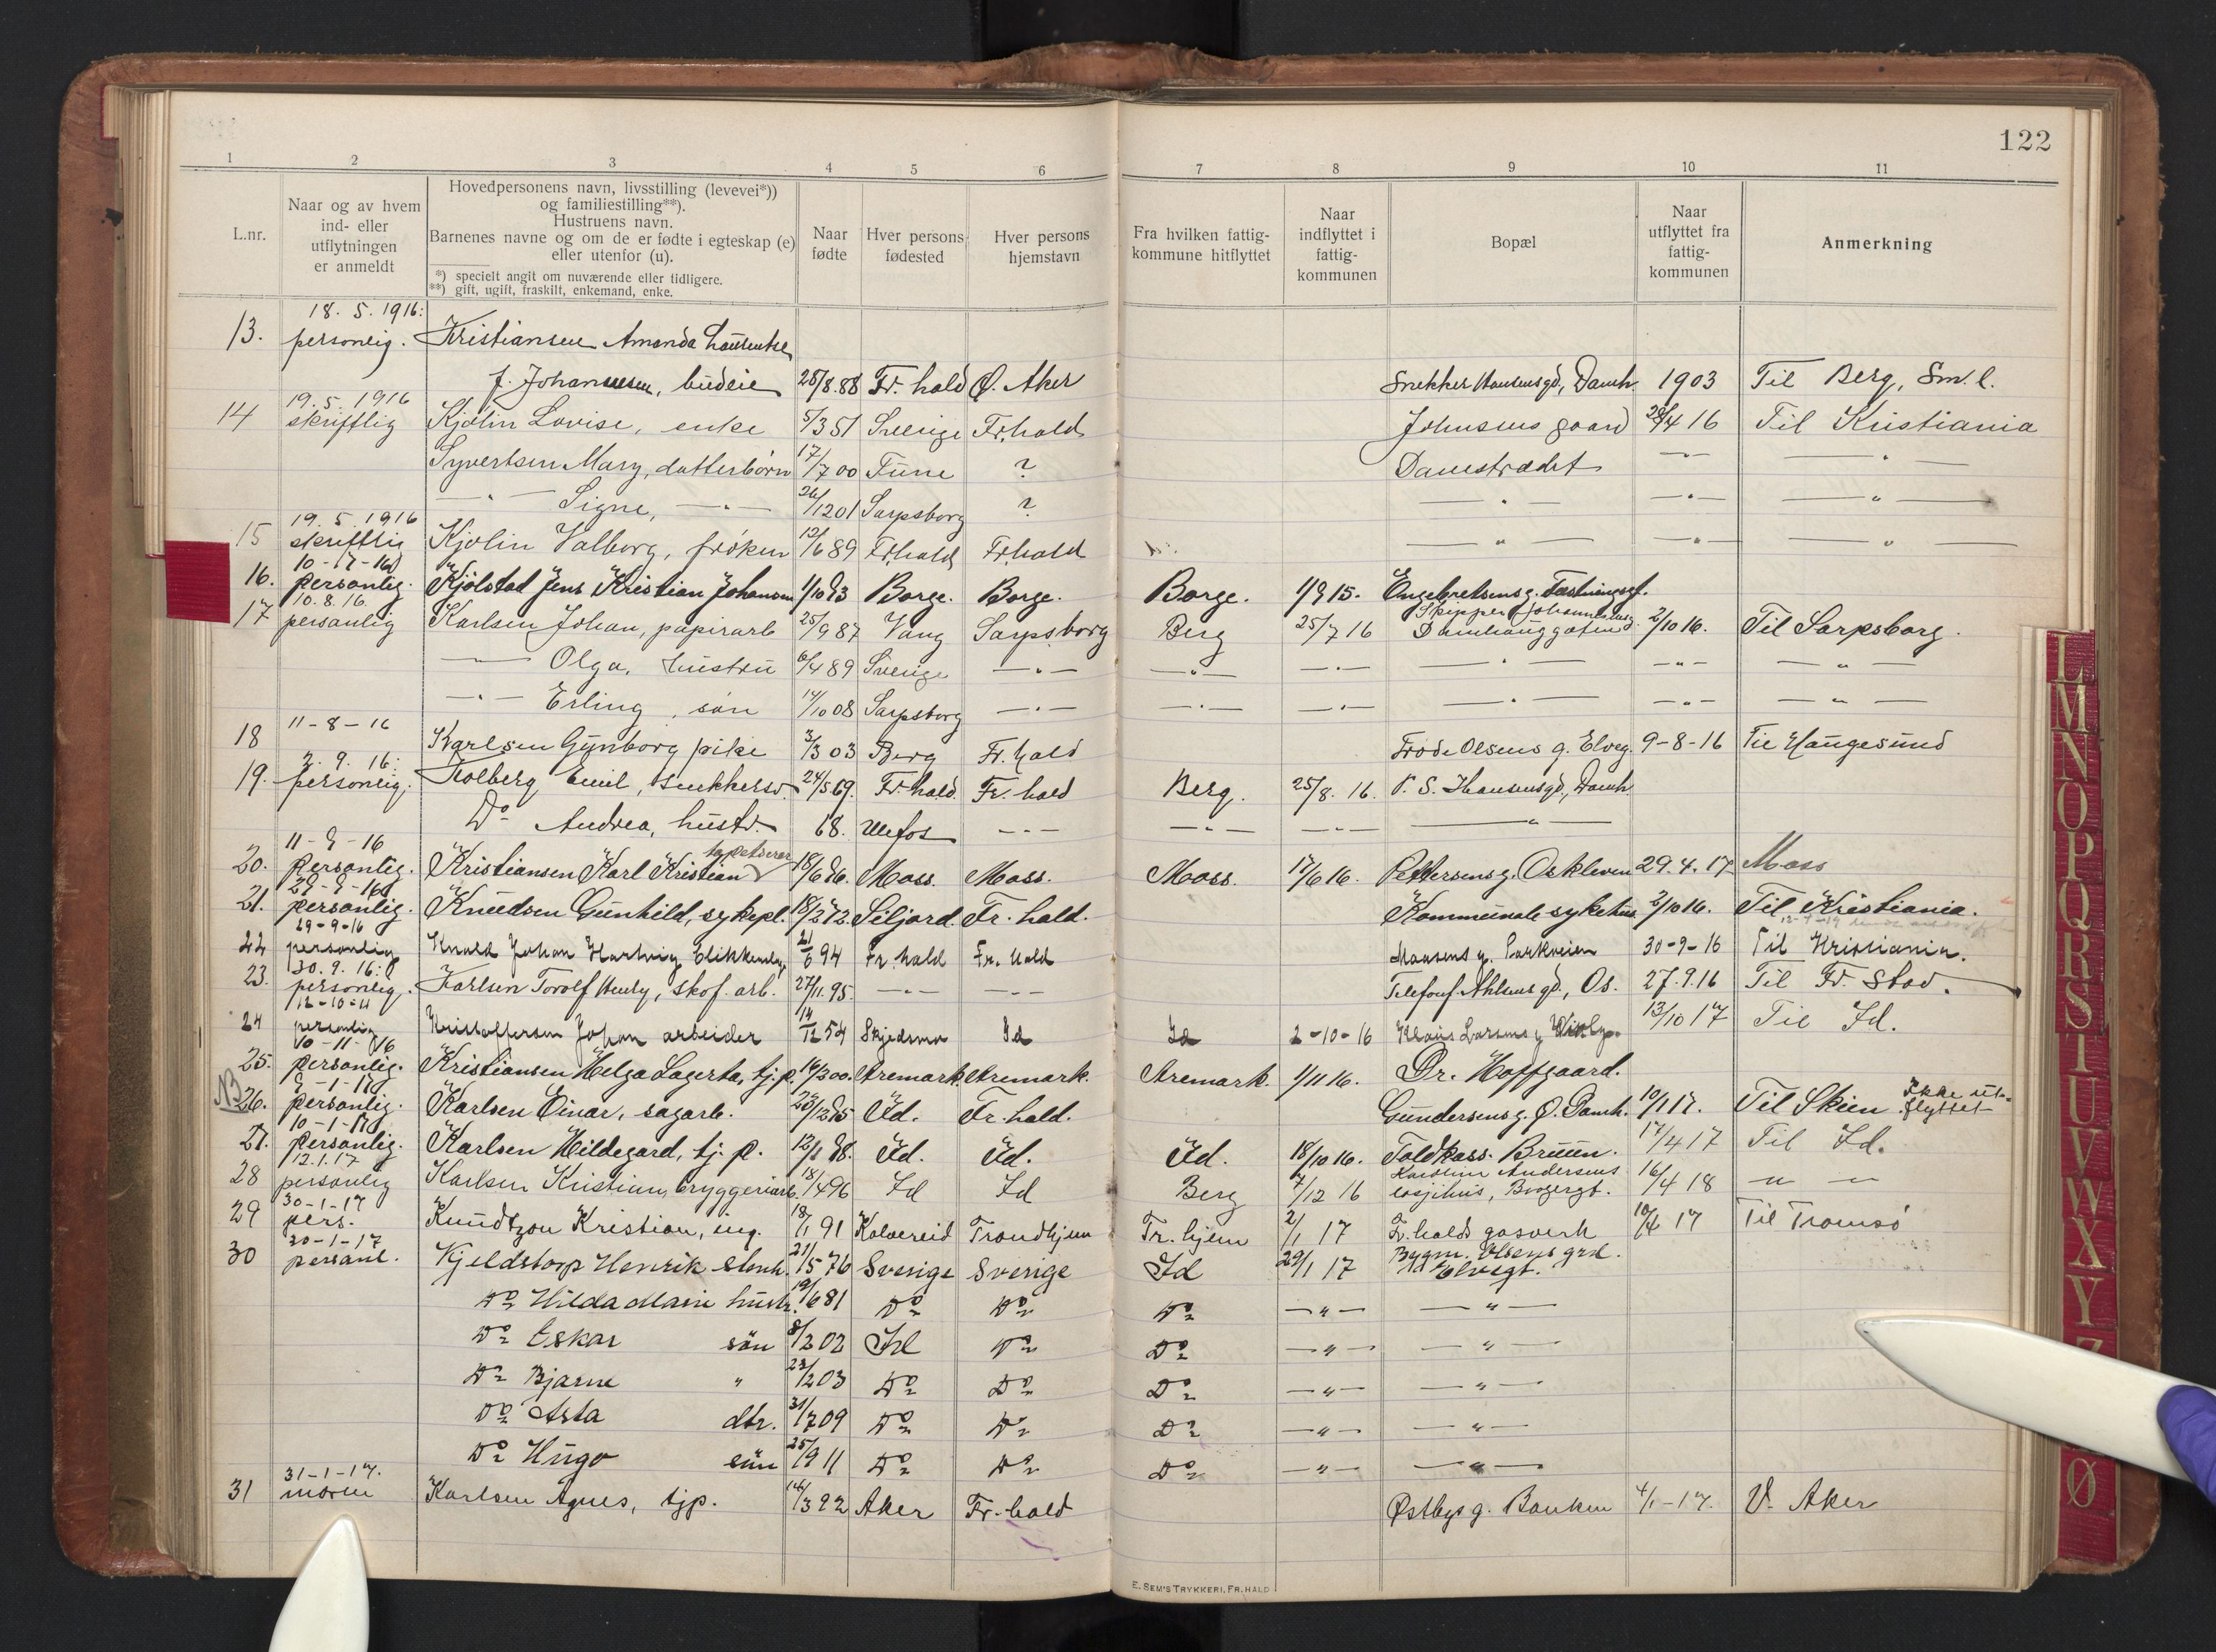 122
1 2 3 4 5 6 7 8 9 10 11
L.nr.
Naar og av hvem
ind- eller
utflytningen
er anmeldt
Hovedpersonens navn, livsstilling (levevei*))
og familiestilling**).
Hustruens navn.
Barnenes navne og om de er fødte i egteskap (e)
eller utenfor (u).
*) specielt angit om nuværende eller tidligere.
**) gift, ugift, fraskilt, enkemand, enke.
Naar
fødte
Hver persons
fødested
Hver persons
hjemstavn
Fra hvilken fattig-
kommune hitflyttet
Naar
indflyttet i
fattig-
kommunen
Bopæl
Naar
utflyttet fra
fattig-
kommunen
Anmerkning
18. 5. 1916:
13. personlig. Kristiansen Amanda
J. Johannesen, budeie 28/8.88 Fr. hald Ø. Aker Snekker Hansensgd, Damh. 1903 Til Berg, Sm.l.
19. 5. 1916
14 skriftlig Kjølin Lovise, enke 5/3 51 Sverige Fr.hald Johnsens gaard 28/4 16 Til Kristiania
Syvertsen Mary, datterbørn 17/7 00 Tune ? Damstrædet — " — — " —
— " — Signe, — " — 26/12 01 Sarpsborg ? — " — — " — — " —
19. 5. 1916
15 skriftlig Kjølin Valborg, frøken 12/6 89 Fr.hald Fr.hald — " — — " — — " —
10-7-16
16. personlig. Kjølstad Jens Kristian Johansen 1/10 83 Borge. Borge. Borge. 1/9 15. Engebretsens g. Fæstningsgt.
10.8.16.
17 personlig Karlsen Johan, papirarb 25/9 87 Vang Sarpsborg Berg 25/7 16 Skipper Johannesens g. Damhauggaten 2/10 16. Til Sarpsborg.
— Olga, hustru 6/4 89 Sverige — " — — " — — " — — " — — " — — " —
— " — Erling, søn 14/10 08 Sarpsborg — " — — " — — " — — " — — " — — " —
11-8-16
18 Karlsen Gunborg pike 3/3 03 Berg Fr. hald Frode Olsens g. Elveg. 9-8-16 Til Haugesund
2. 9. 16:
19. personlig. Kolberg Emil, snekkersv. 24/5 69. Fr. hald. Fr. hald Berg. 25/8. 16. P. S. Hansensgd, Damh.
Do Andrea, hustr. 68. Ulefos — " — — " — — " — — " —
11-9-16
20. Personlig. Kristiansen Karl Kristian tapetserer 18/6 86. Moss. Moss. Moss. 17/6 16. Pettersens g. Oskleven 29.4.17 Moss
29-9-16
21. personlig. Knudsen Gunhild, sykepl. 18/2 72. Siljord Fr. hald. Kommunale sykehus 2/10 16. Til Kristiania.
29-9-16
22 personlig Knold Johan Hartvig Blikkensl. 21/6 94 Fr. hald Fr. hald Maasens g. Parkveien 30-9-16 Til Kristiania.
30. 9. 16:
23. personlig. Karlsen Torolf Henry, skof. arb. 27/11. 95. — " — — " — Telefonf. Ahlens gd, Os. 27.9.16 Til Fr. Stad.
12-10-16
24 personlig Kristoffersen Johan arbeider 14/12 54 Skjedsmo Id Id 2-10-16 Klaus Larsens g 13/10 17 Til Id.
10-11-16
25. personlig. Kristiansen Helga Lagerta, tj. p. 14/2 00. Aremark. Aremark. Aremark. 1/11 16. Dr. Hoffgaard.
9-1-17
NB 26. personlig. Karlsen Einar, sagarb. 23/12 85 Id. Fr. hald. Gundersens g. Ø. Damh. 10/1 17. Til Skien Ikke ut-
flyttet
10-1-17
27. personlig. Karlsen Hildegard, tj. p. 12/1 88. Id. Id. Id. 18/10 16. Toldkass. Bruun. 17/4 17 Til Id.
12.1.17
28 personlig Karlsen Kristian, bryggeriarb. 18/4 96 Id Id Berg 7/12 16 Karoline Andersens losjihus, Borgergt. 16/4 18 — " —
30-1-17
29 pers. Knudtzon Kristian, ing. 18/1 91 Kolvereid Trondhjem Tr. hjem 2/1 17 Fr. halds gasverk 10/4 17 Til Tromsø
30-1-17
30 personl. Kjeldstorp Henrik stenh. 21/5 76 Sverige Sverige Id 29/1 17 Bygm. Olsens grd. Elvegt.
Do Hilda Marie hustr. 19/6 81 Do Do Do — " — — " —
Do Eskar søn 8/2 02 Id Do Do — " — — " —
Do Bjarne " 23/2 03 Do Do Do — " — — " —
Do Asta dtr. 31/7 09 Do Do Do — " — — " —
Do Hugo søn 25/9 11 Do Do Do — " — — " —
31-1-17.
31 moren Karlsen Agnes, tjp. 14/3 92 Aker Fr. hald Østbys g. Banken 4/1-17. V. Aker
E. SEM'S TRYKKERI, FR. HALD
L
M
N
O
P
Q
R
S
T
U
V
W
X
Y
Z
Ø